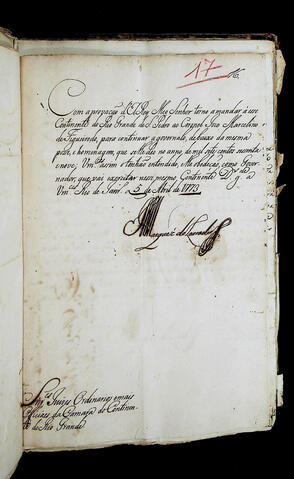 17
Com approvação d'ElRey Meu Senhor torna a mandar á esse
Continente do Rio Grande de S. Pedro ao Coronel Joze Marcelino
de Figueiredo, para continuar a governalo, debaixo da mesma
posse, e homenagem, que se lhe deo no anno de mil sete centos secenta
e nove; Vm.ces assim o tenhaõ entendido, e lhe obedeçaõ, como Gover-
nador, que vay exercitar nesse mesmo Continente. D.s g.de a
Vm.ces Rio de Janr.o 5 de Abril de 1773
Marquez de Lavradio
Snr.es Juizes Ordinarios e mais
Officiaes da Camara do Continen-
te do Rio Grande